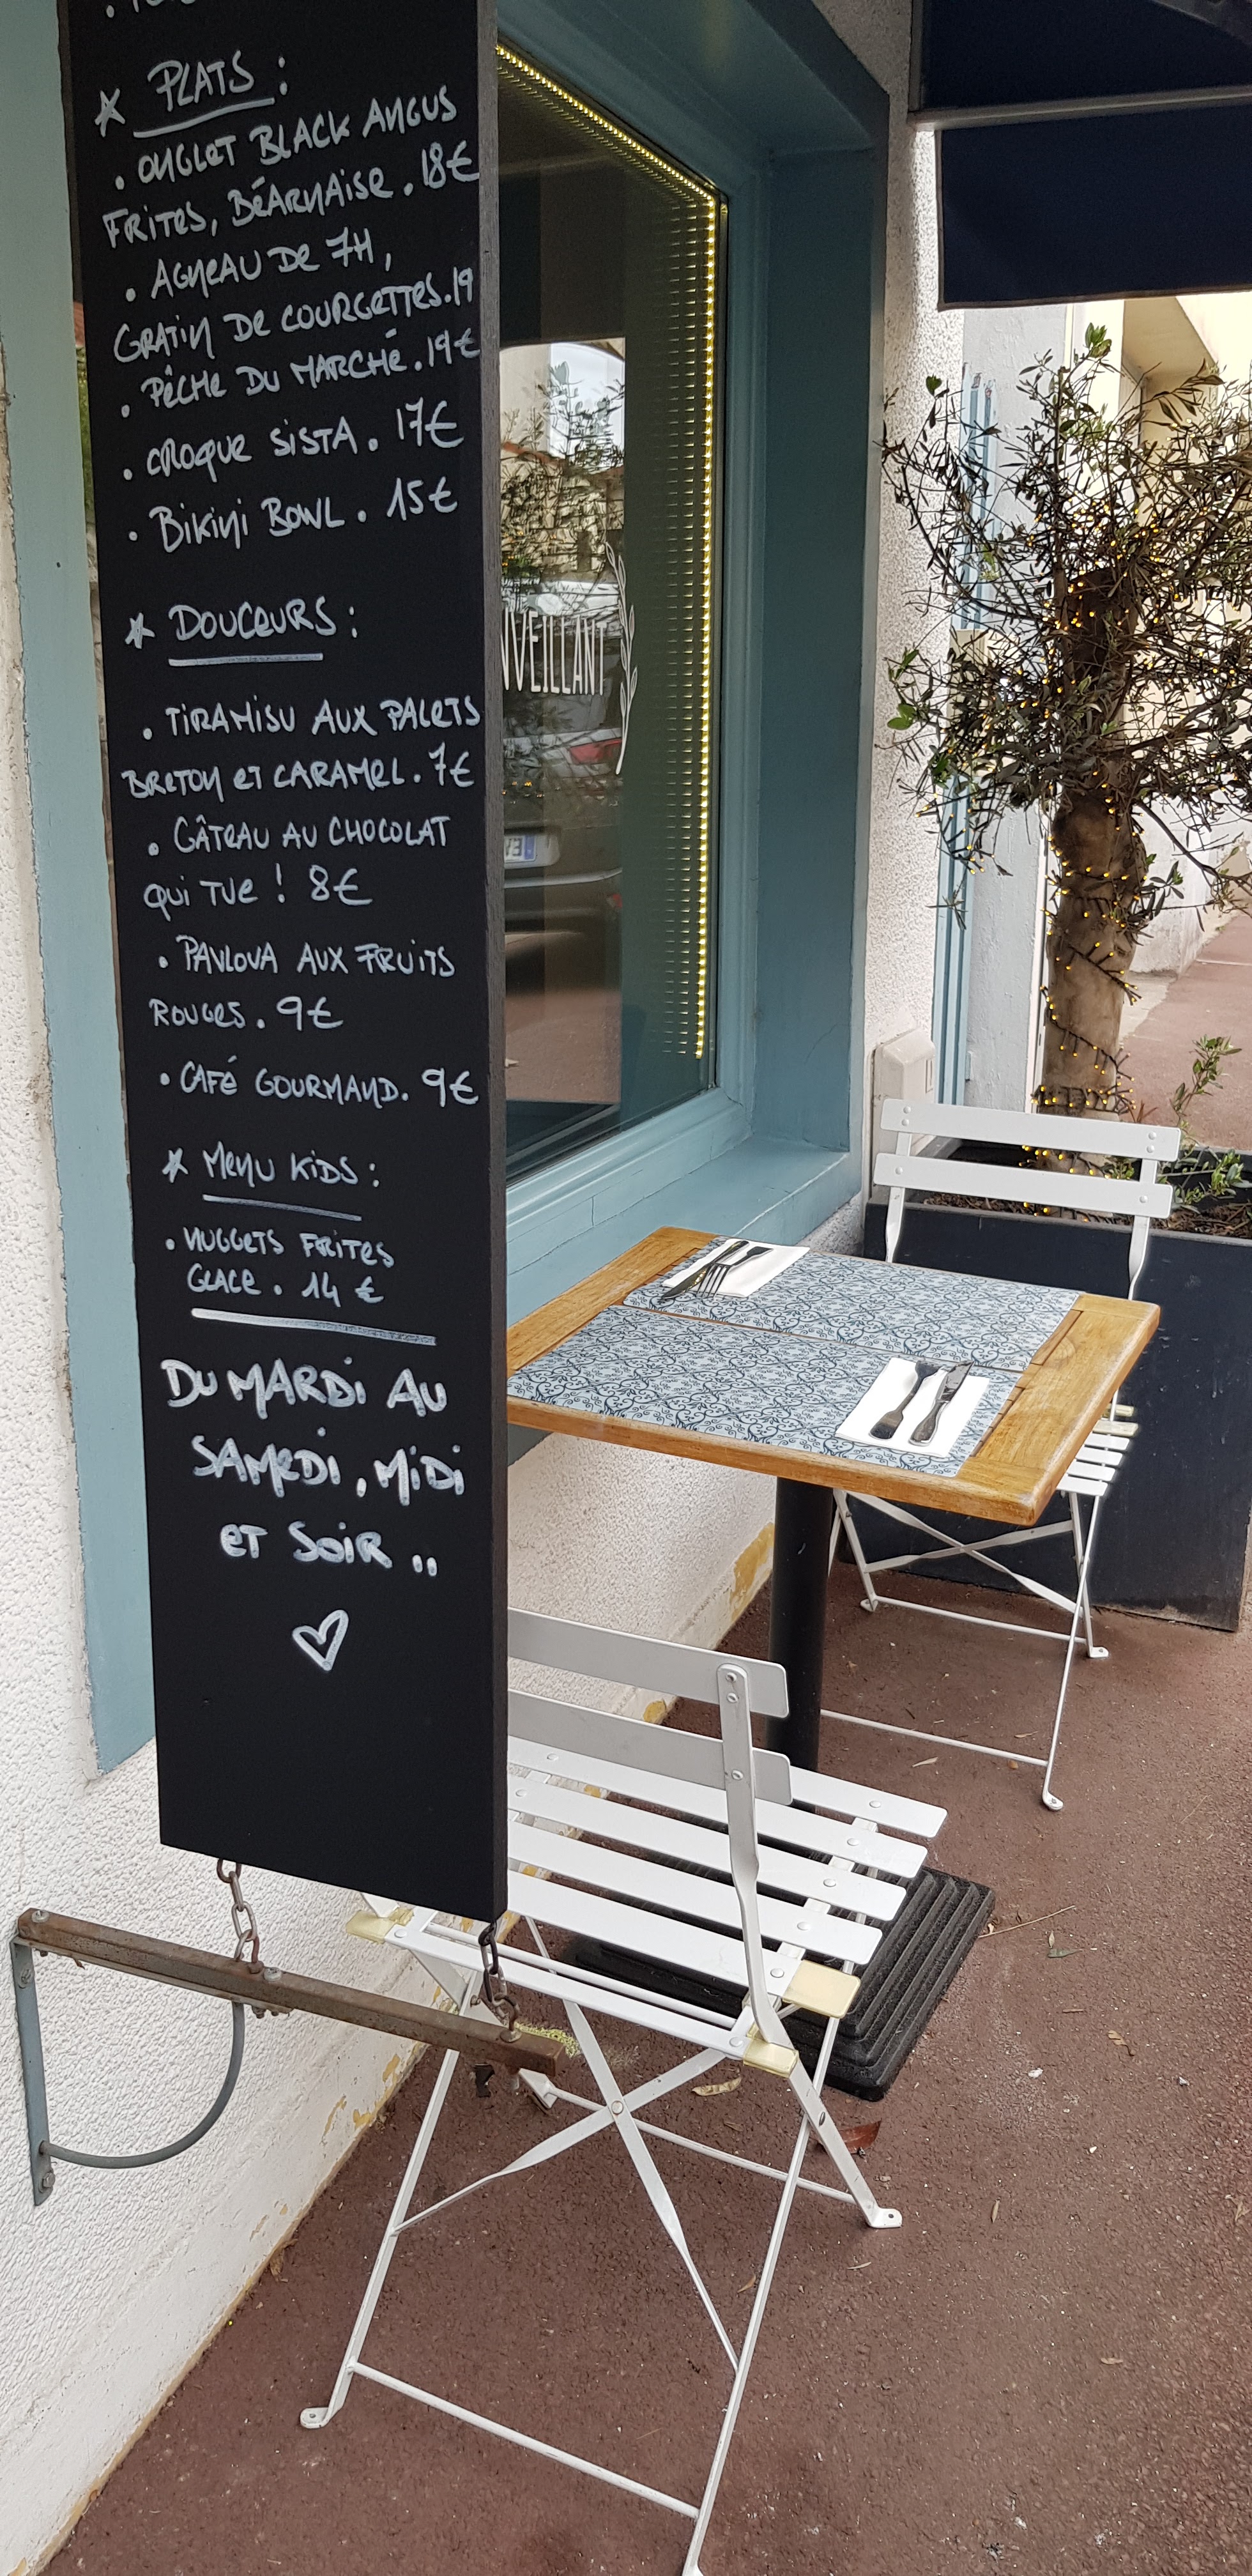 * PLATS :
. ONGLET BLACK ANGUS
FRITES, BÉARNAISE . 18€
. AGNEAU DE 7H,
GRATIN DE COURGETTES . 19
. PÊCHE DU MARCHÉ . 19€
. CROQUE SISTA . 17€
. BIKINI BOWL . 15€
* DOUCEURS :
. TIRAMISU AUX PALETS
BRETON ET CARAMEL . 7€
. GÂTEAU AU CHOCOLAT
QUI TUE ! 8€
. PAVLOVA AUX FRUITS
ROUGES . 9€
. CAFÉ GOURMAND . 9€
* MENU KIDS :
. NUGGETS FRITES
GLACE . 14 €
DU MARDI AU
SAMEDI, MIDI
ET SOIR ..
NVEILLANT